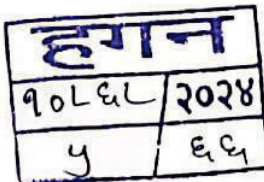 हगन
१०८६८ २०२४
५ ६६